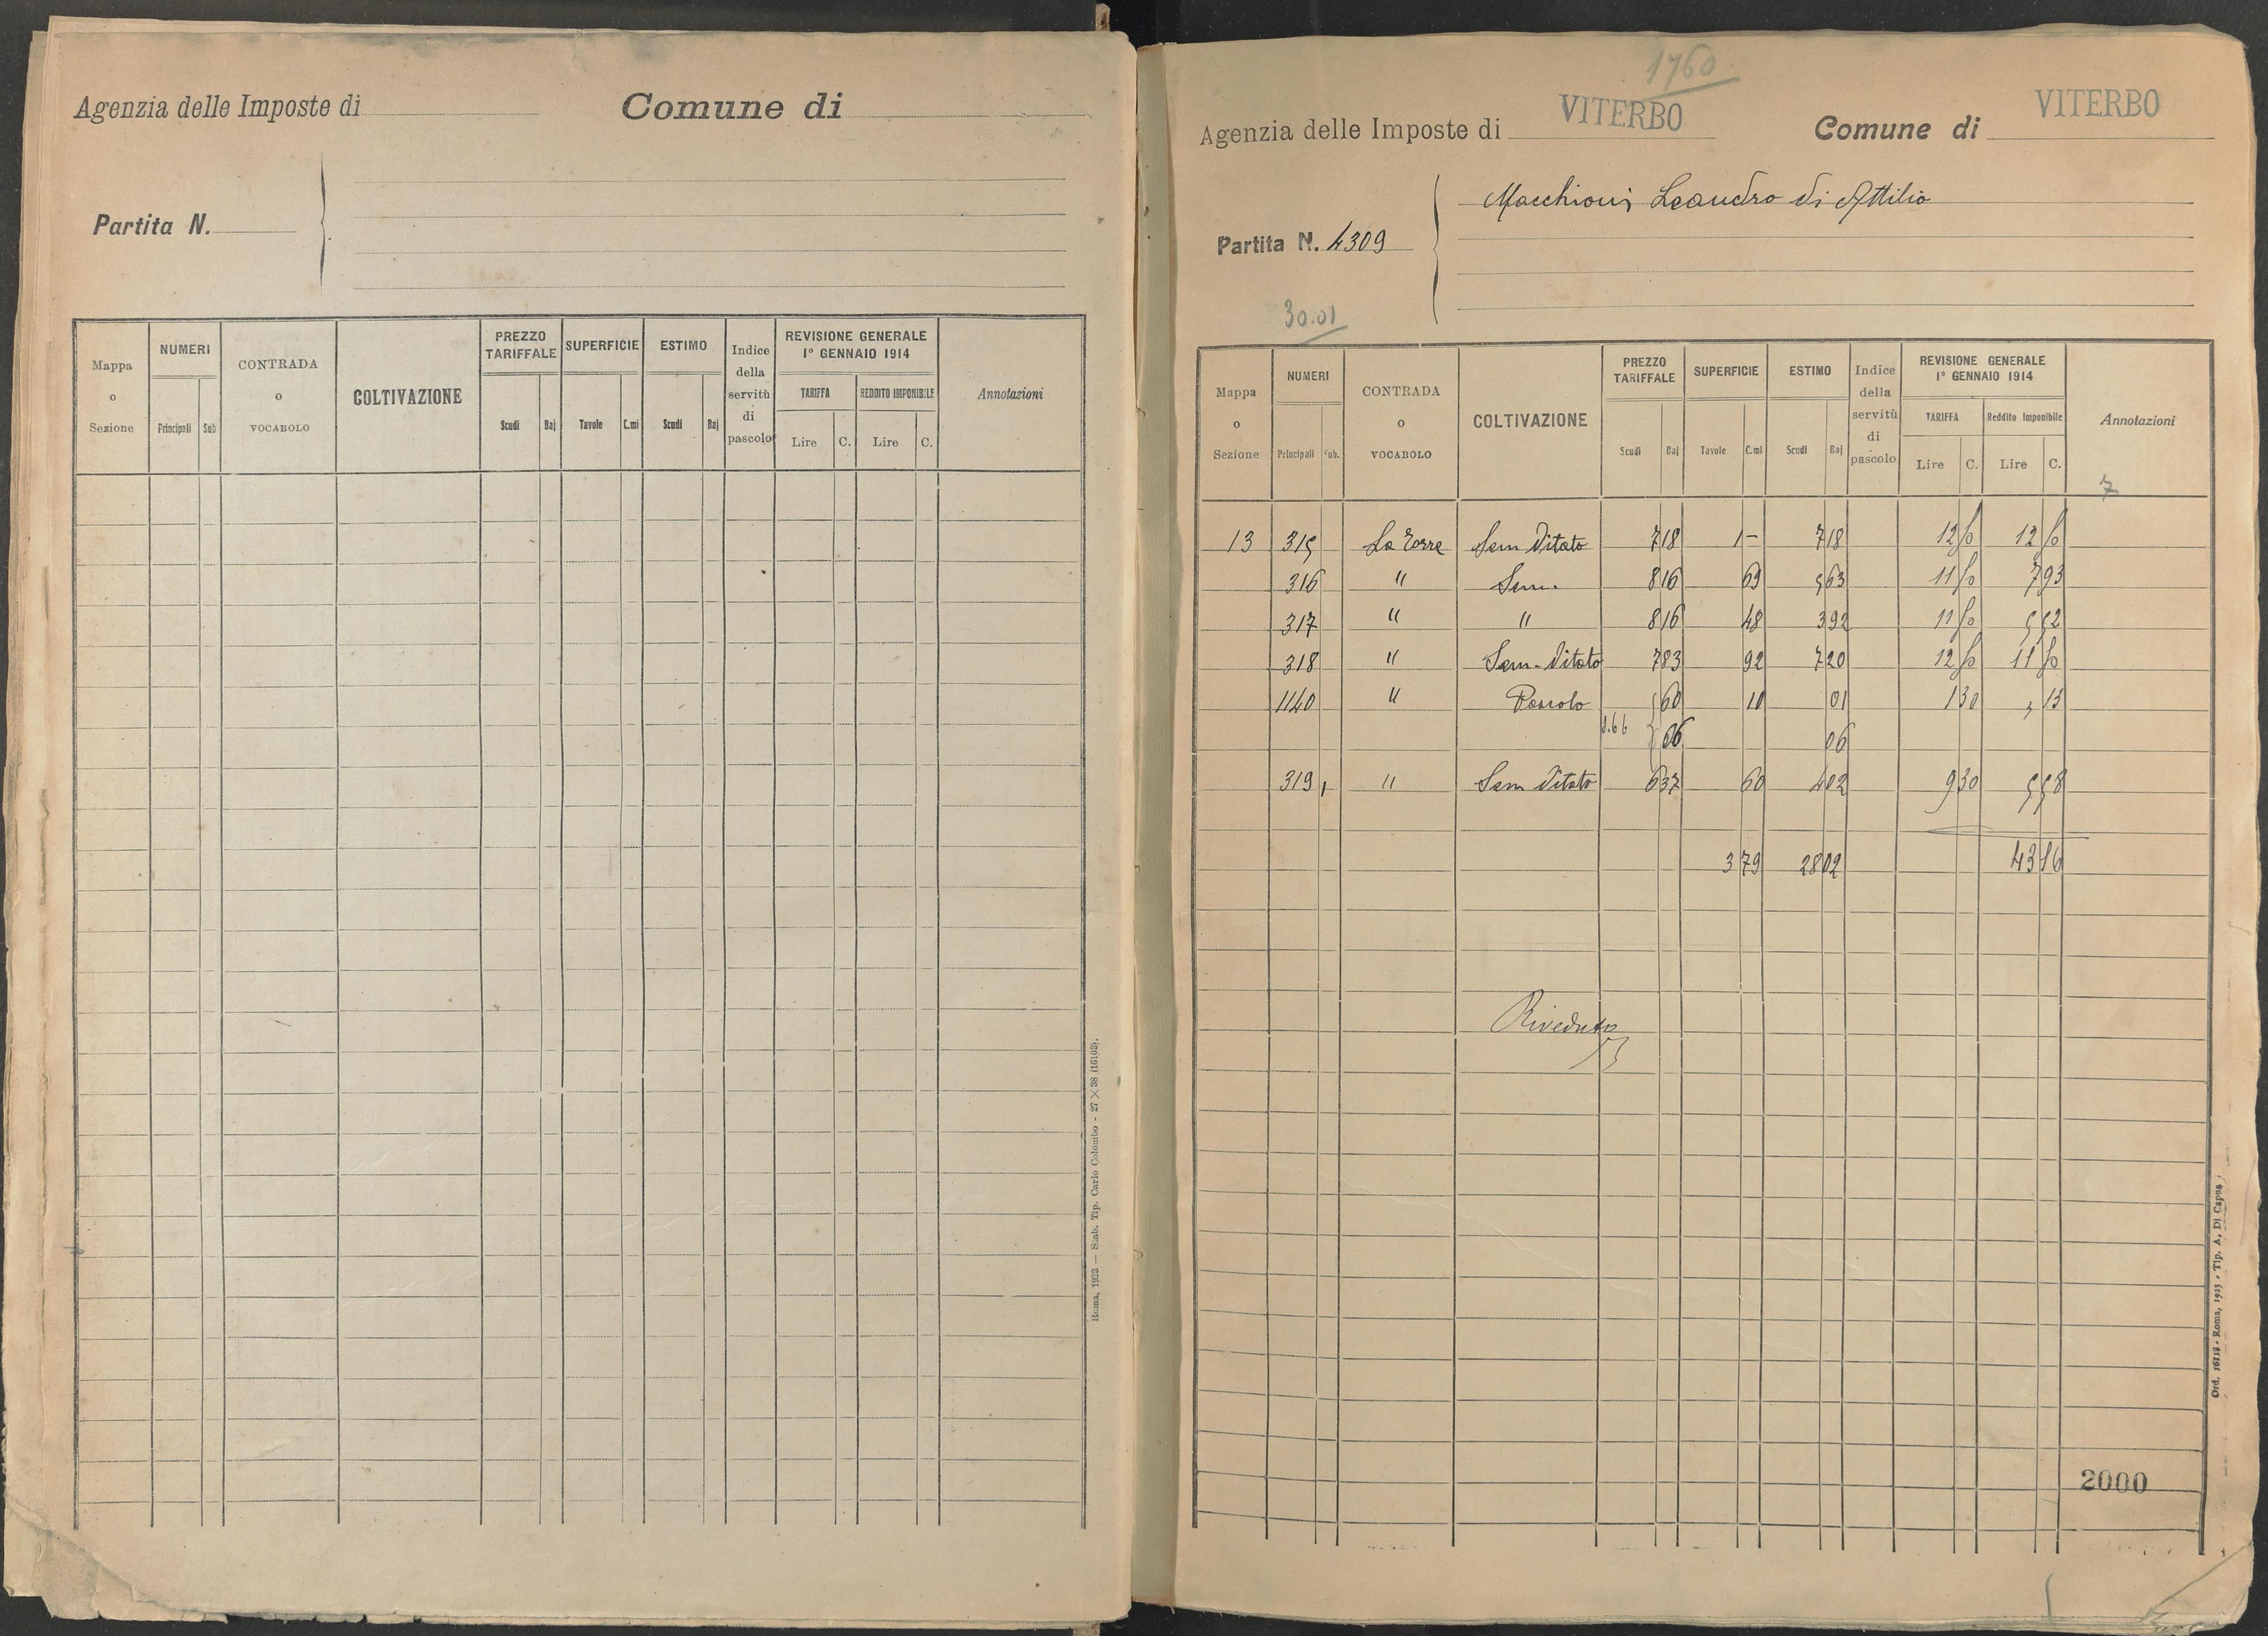 Agenzia delle Imposte di Comune di
Partita N.
Mappa o Sezione NUMERI Principali Sub CONTRADA o VOCABOLO COLTIVAZIONE PREZZO TARIFFALE Scudi Baj SUPERFICIE Tavole C.mi ESTIMO Scudi Baj Indice della servitù di pascolo REVISIONE GENERALE 1° GENNAIO 1914 TARIFFA Lire C. REDDITO IMPONIBILE Lire C. Annotazioni
Roma, 1923 — Stab. Tip. Carlo Colombo - 27 X 38 (16103).
1760
Agenzia delle Imposte di VITERBO Comune di VITERBO
Macchioni Leandro di Attilio
Partita N. 4309
30.01
Mappa o Sezione NUMERI Principali Sub. CONTRADA o VOCABOLO COLTIVAZIONE PREZZO TARIFFALE Scudi Baj SUPERFICIE Tavole C.mi ESTIMO Scudi Baj Indice della servitù di pascolo REVISIONE GENERALE 1° GENNAIO 1914 TARIFFA Lire C. Reddito Imponibile Lire C. Annotazioni
7
13 315 La Torre Sem Vitato 7 18 1 — 7 18 12 50 12 50
316 " Sem. 8 16 69 5 63 11 50 7 93
317 " " 8 16 48 3 92 11 50 5 52
318 " Sem-Vitato 7 83 92 7 20 12 50 11 50
1140 " Pascolo 60 10 01 1 30 , 13
0.66 06 06
319 1 " Sem Vitato 6 37 60 4 02 9 30 5 58
3 79 28 02 43 16
Riveduto
2000
Ord. 16118 - Roma, 1923 - Tip. A. Di Capua